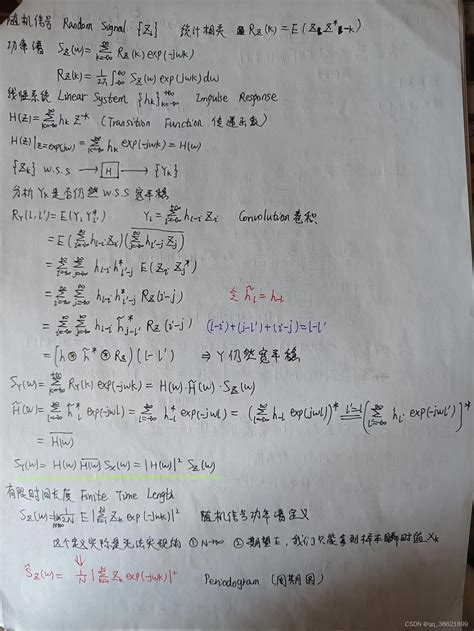 随机信号 Random Signal {Z_k} 统计相关 R_Z(k) = E(Z_n Z*_{n-k})
功率谱 S_Z(w) = Σ_{k=-∞}^{∞} R_Z(k) exp(-jwk)
R_Z(k) = 1/2π ∫_{-∞}^{∞} S_Z(w) exp(jwk) dw
线性系统 Linear System {h_k}_{k=-∞}^{+∞} Impulse Response
H(Z) = Σ_{k=-∞}^{∞} h_k Z^{-k} (Transition Function 传递函数)
H(Z)|_{Z=exp(jw)} = Σ_{k=-∞}^{∞} h_k exp(-jwk) = H(w)
{Z_k} W.S.S → H → {Y_k}
分析 Y_k 是否仍然 W.S.S 宽平稳
R_Y(l,l') = E(Y_l Y*_{l'}) Y_l = Σ_{i=-∞}^{+∞} h_{l-i} Z_i Convolution 卷积
= E(Σ_{i=-∞}^{∞} h_{l-i} Z_i)(Σ_{j=-∞}^{∞} h_{l'-j} Z_j)
= Σ_{i=-∞}^{∞} Σ_{j=-∞}^{∞} h_{l-i} h*_{l'-j} E(Z_i Z_j*)
= Σ_{i=-∞}^{∞} Σ_{j=-∞}^{∞} h_{l-i} h*_{l'-j} R_Z(i-j) 令 h̃_l = h_{-l}
= Σ_{i=-∞}^{∞} Σ_{j=-∞}^{∞} h_{l-i} h̃*_{j-l'} R_Z(i-j) (l-i)+(j-l')+(i-j) = l-l'
= (h ⊛ h̃* ⊛ R_Z)(l-l') ⇒ Y仍然宽平稳
S_Y(w) = Σ_{k=-∞}^{+∞} R_Y(k) exp(-jwk) = H(w)·H̃(w)·S_Z(w)
H̃(w) = Σ_{l=-∞}^{∞} h̃*_l exp(-jwl) = Σ_{l=-∞}^{∞} h*_{-l} exp(-jwl) = (Σ_{l=-∞}^{∞} h_{-l} exp(jwl))* = [Σ_{l'=-∞}^{∞} h_{l'} exp(-jwl')]*
= \overline{H(w)}
S_Y(w) = H(w) \overline{H(w)} S_Z(w) = |H(w)|² S_Z(w)
有限时间长度 Finite Time Length
E|Σ Z_k exp(-jwk)|² 随机信号功率谱定义
这个定义实际是无法实现的 ① N→∞ ② 期望E，我们只能拿到样本瞬时值 X_k
Ŝ_Z(w) = 1/N |Σ Z_k exp(-jwk)|² Periodogram (周期图)
CSDN @qq_38621899